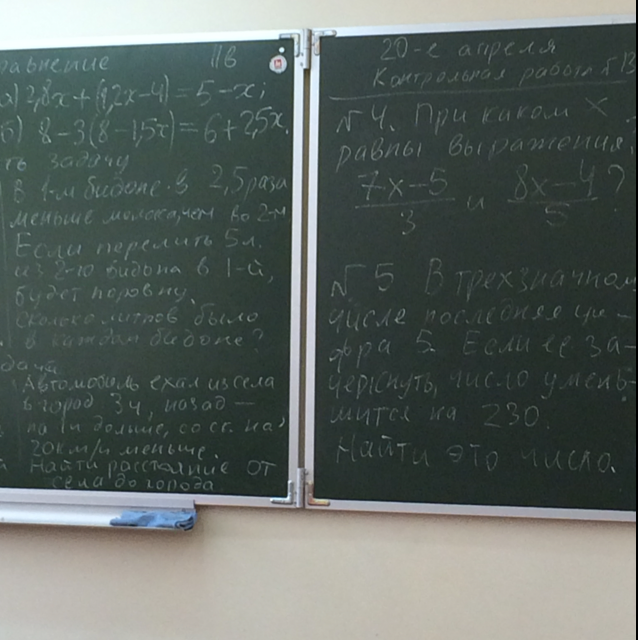 равнение IIв
а) 2,8x+(1,2x-4)=5-x;
б) 8-3(8-1,5x)=6+2,5x.
ть задачу
В 1-м бидоне в 2,5 раза
меньше молока, чем во 2-м
Если перелить 5л.
из 2-го бидона в 1-й,
будет поровну.
Сколько литров было
в каждом бидоне?
дача
Автомобиль ехал из села
в город 3ч, назад –
на 1ч дольше, со ск. на
20км/ч меньше.
Найти расстояние от
села до города
20-е апреля
Контрольная работа №13
№4. При каком x
равны выражения
7x-5/3 и 8x-4/5?
№5 В трехзначном
числе последняя ци-
фра 5. Если ее за-
черкнуть, число умень-
шится на 230.
Найти это число.